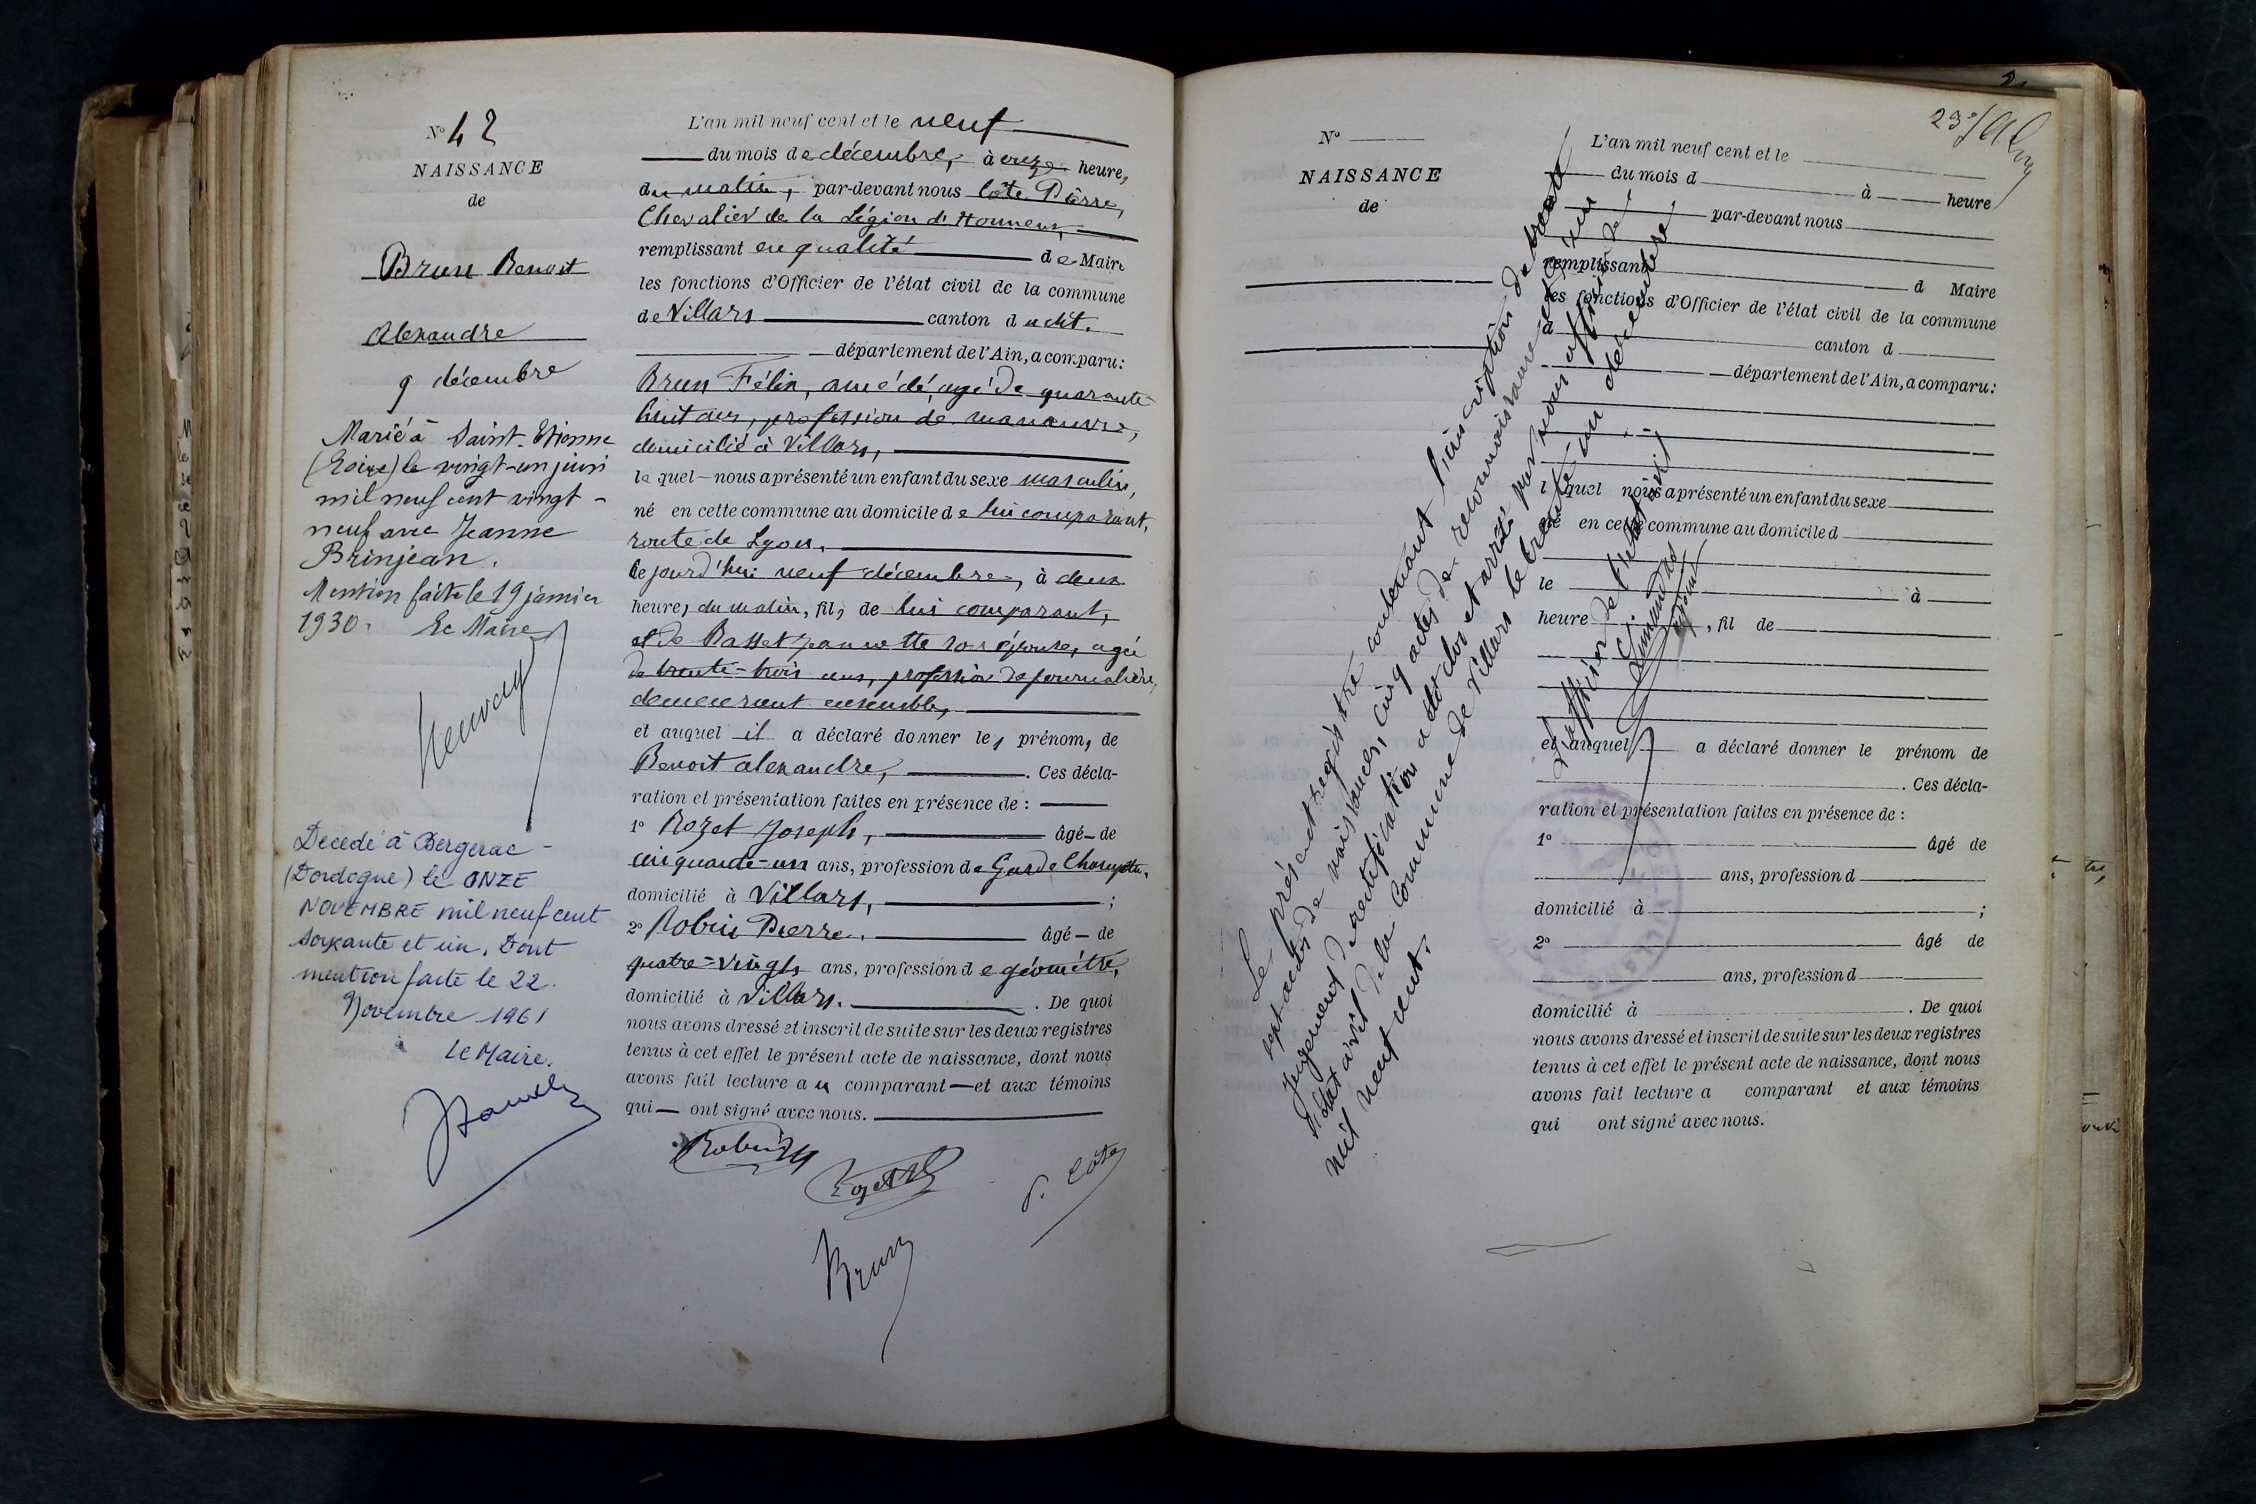 N° 42
NAISSANCE
de
Brun Benoit
Alexandre
9 décembre
Marié à Saint-Etienne
(Loire) le vingt-un juin
mil neuf cent vingt-
neuf avec Jeanne
Brinjean.
Mention faite le 19 janvier
1930. Le Maire
Décédé à Bergerac -
(Dordogne) le ONZE
NOVEMBRE mil neuf cent
soixante et un. Dont
mention faite le 22
Novembre 1961
Le Maire.
L'an mil neuf cent et le neuf
du mois de décembre, à onze heures,
du matin, par-devant nous Côte Pierre,
Chevalier de la Légion d'Honneur,
remplissant en qualité de Maire
les fonctions d'Officier de l'état civil de la commune
de Villars canton dudit.
département de l'Ain, a comparu:
Brun Félix, amédé, agé de quarante
huit ans, profession de manœuvre,
domicilié à Villars,
lequel nous a présenté un enfant du sexe masculin,
né en cette commune au domicile de lui comparant,
route de Lyon,
le jourd'hui neuf décembre, à deux
heures du matin, fils de lui comparant,
et de Basset Jeannette son épouse, agée
de trente-trois ans, profession de journalière,
demeurant ensemble,
et auquel il a déclaré donner les prénoms de
Benoit Alexandre, . Ces décla-
ration et présentation faites en présence de :
1° Rozet Joseph, âgé de
cinquante-un ans, profession de Garde Champêtre,
domicilié à Villars, ;
2° Robin Pierre, âgé de
quatre-vingts ans, profession de géomètre,
domicilié à Villars. . De quoi
nous avons dressé et inscrit de suite sur les deux registres
tenus à cet effet le présent acte de naissance, dont nous
avons fait lecture au comparant et aux témoins
qui ont signé avec nous.
Robin
Rozet
P. Côte
Brun
N°
NAISSANCE
de
L'an mil neuf cent et le
du mois d à heure
par-devant nous
remplissant d Maire
les fonctions d'Officier de l'état civil de la commune
d canton d
département de l'Ain, a comparu:
l quel nous a présenté un enfant du sexe
né en cette commune au domicile d
le à
heure , fil de
et auquel a déclaré donner le prénom de
. Ces décla-
ration et présentation faites en présence de :
1° âgé de
ans, profession d
domicilié à ;
2° âgé de
ans, profession d
domicilié à . De quoi
nous avons dressé et inscrit de suite sur les deux registres
tenus à cet effet le présent acte de naissance, dont nous
avons fait lecture a comparant et aux témoins
qui ont signé avec nous.
Le présent registre contenant l'inscription de trente
sept actes de naissances, cinq actes de reconnaissance et d'un
jugement de rectification a été clos et arrêté par nous officier de
l'état civil de la commune de Villars le trente un décembre
mil neuf cent.
L'officier de l'état civil